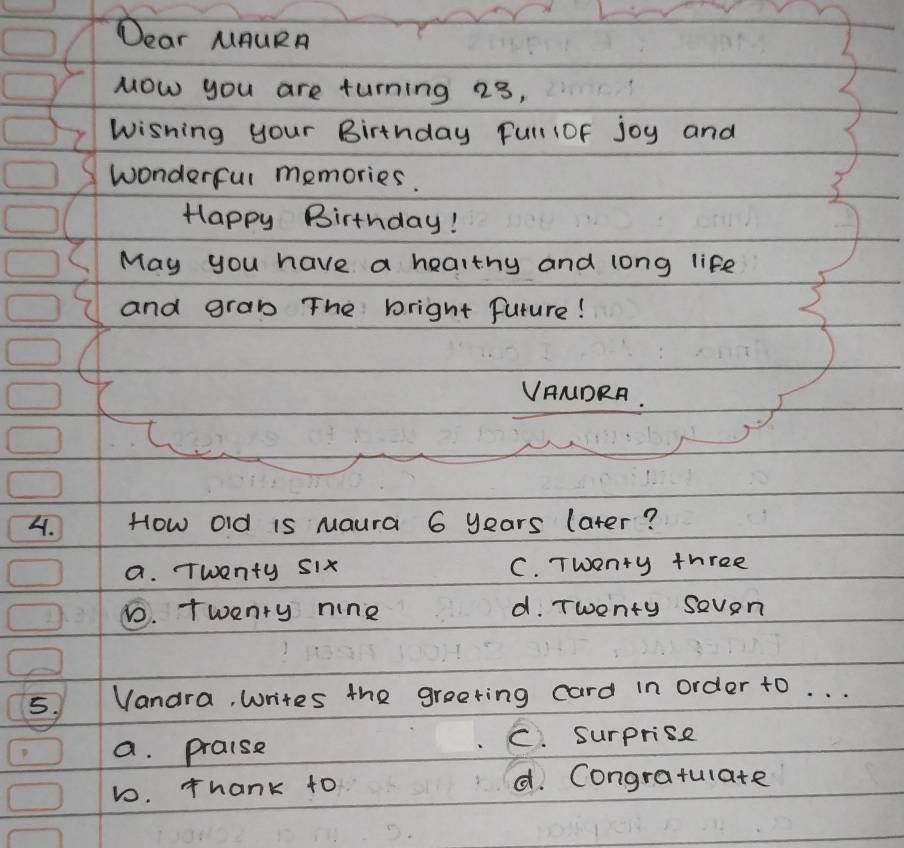 Dear MAURA
Now you are turning 23,
Wishing your Birthday full of joy and
wonderful memories.
Happy Birthday!
May you have a healthy and long life
and grab The bright future!
VANDRA.
4. How old is Maura 6 years later?
a. Twenty six C. Twenty three
b. Twenty nine d. Twenty Seven
5. Vandra, writes the greeting card in order to ...
a. praise C. Surprise
b. Thank to d. Congratulate